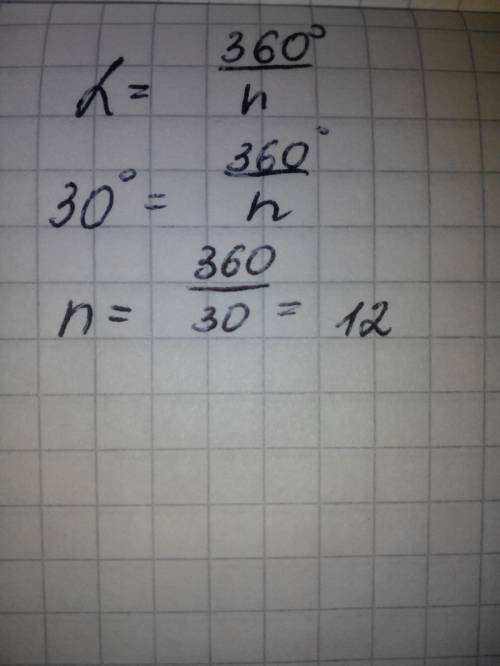 α = 360°/n
30° = 360°/n
n = 360/30 = 12